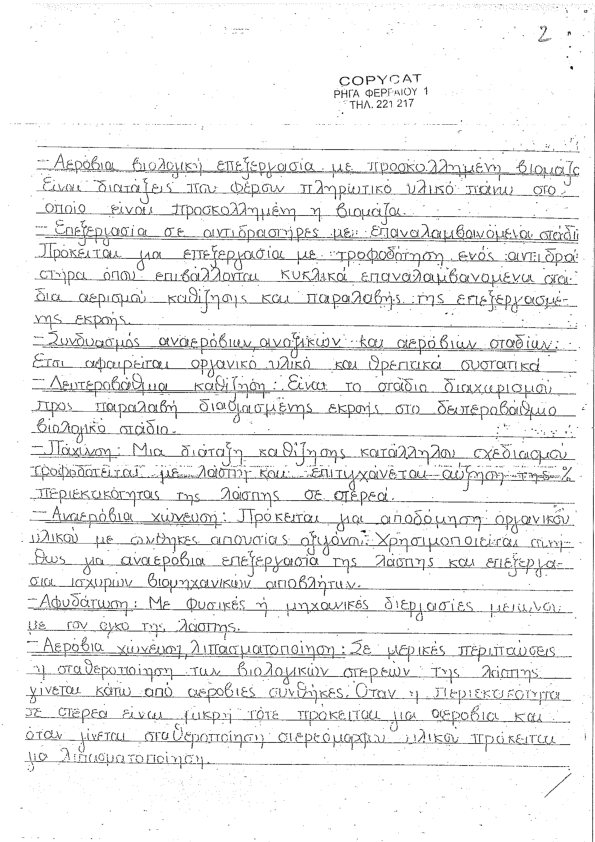 2
COPYCAT
ΡΗΓΑ ΦΕΡΡΑΙΟΥ 1
ΤΗΛ. 221 217
- Αερόβια βιολογική επεξεργασία με προσκολλημένη βιομάζα
Είναι διατάξεις που φέρουν πληρωτικό υλικό πάνω στο
οποίο είναι προσκολλημένη η βιομάζα.
- Επεξεργασία σε αντιδραστήρες με επαναλαμβανόμενα στάδι
Πρόκειται για επεξεργασία με τροφοδότηση ενός αντιδρα
στήρα όπου επιβάλλονται κυκλικά επαναλαμβανομενα στά-
δια αερισμού καθίζησης και παραλαβής της επεξεργασμέ-
νης εκροής.
- Συνδυασμός αναερόβιων, ανοξικών και αερόβιων σταδίων:
Έτσι αφαιρείται οργανικό υλικό και θρεπτικά συστατικά
- Δευτεροβάθμια καθίζηση: Είναι το στάδιο διαχωρισμού
προς παραλαβή διαυγασμένης εκροής στο δευτεροβάθμιο
βιολογικό στάδιο.
- Πάχυνση: Μια διάταξη καθίζησης κατάλληλου σχεδιασμού
τροφοδοτείται με λάσπη και επιτυγχάνεται αύξηση της %
περιεκτικότητας της λάσπης σε στερεά.
- Αναερόβια χώνευση: Πρόκειται για αποδόμηση οργανικού
υλικού με συνθήκες απουσίας οξυγόνου. Χρησιμοποιείται συνή-
θως για αναερόβια επεξεργασία της λάσπης και επεξεργα-
σια ισχυρών βιομηχανικών αποβλήτων.
- Αφυδάτωση: Με φυσικές ή μηχανικές διεργασίες μειώνου
με τον όγκο της λάσπης.
- Αερόβια χώνευση, λιπασματοποίηση: Σε μερικές περιπτώσεις
η σταθεροποίηση των βιολογικών στερεών της λάσπης
γίνεται κάτω από αερόβιες συνθήκες. Όταν η περιεκτικότητα
σε στερεά είναι μικρή τότε πρόκειται για αερόβια και
όταν γίνεται σταθεροποίηση στερεόμορφων υλικών πρόκειται
για λιπασματοποίηση.